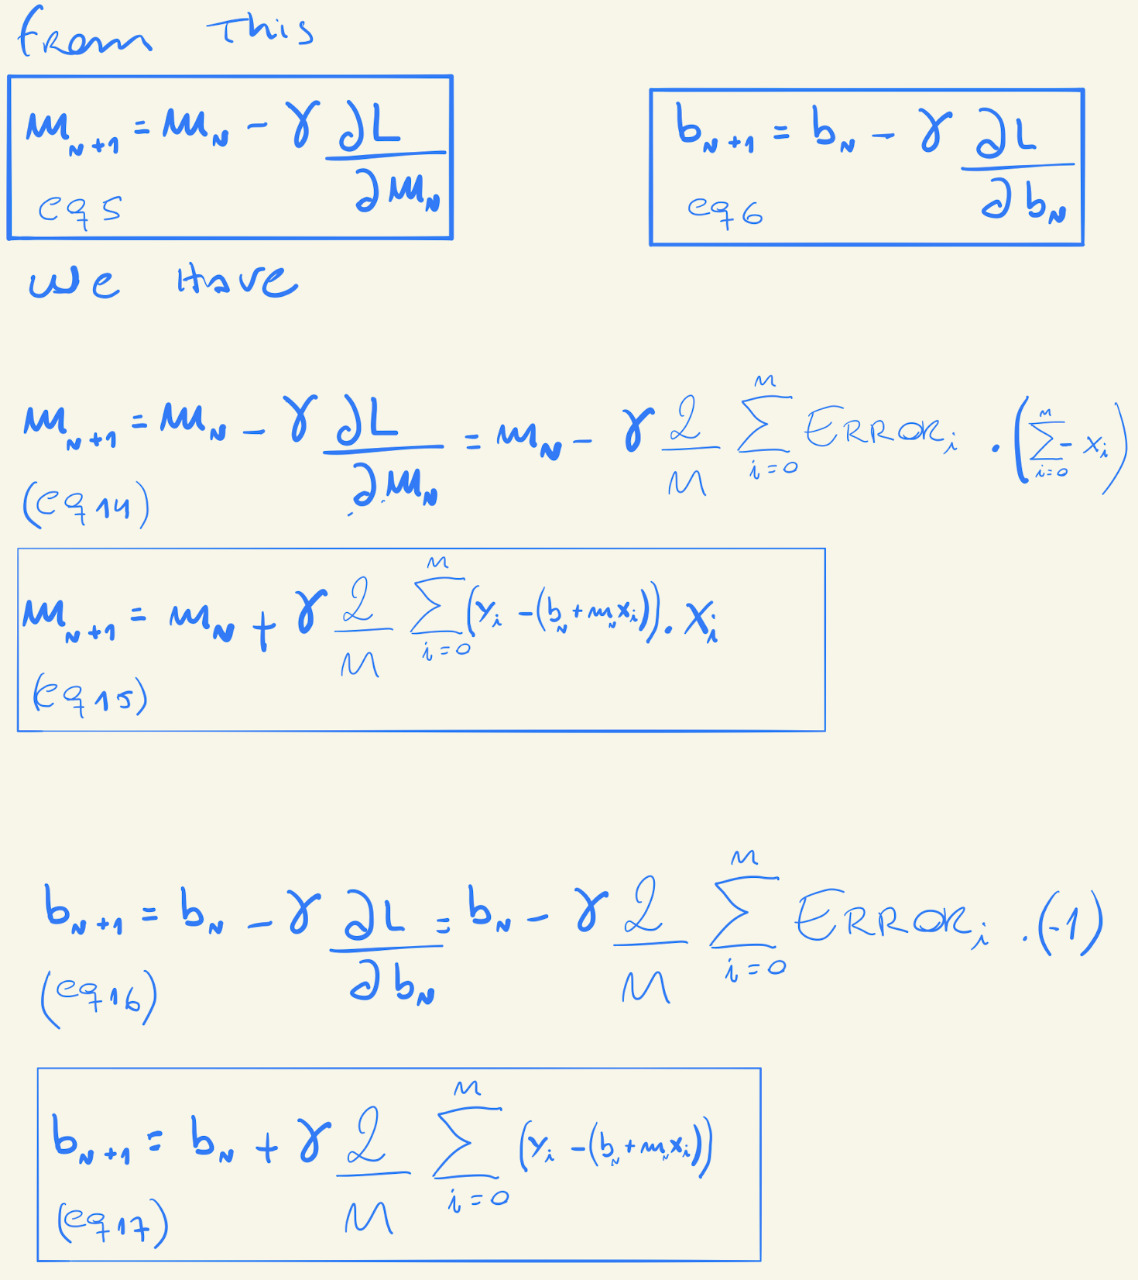 from This
m_{N+1} = m_N - γ ∂L/∂m_N    b_{N+1} = b_N - γ ∂L/∂b_N
eq 5    eq 6
we Have
m_{N+1} = m_N - γ ∂L/∂m_N = m_N - γ 2/M ∑_{i=0}^{M} ERROR_i · (∑_{i=0}^{M} - x_i)
(eq 14)
m_{N+1} = m_N + γ 2/M ∑_{i=0}^{M} (y_i - (b_N + m_N x_i)) · x_i
(eq 15)
b_{N+1} = b_N - γ ∂L/∂b_N = b_N - γ 2/M ∑_{i=0}^{M} ERROR_i · (-1)
(eq 16)
b_{N+1} = b_N + γ 2/M ∑_{i=0}^{M} (y_i - (b_N + m_N x_i))
(eq 17)